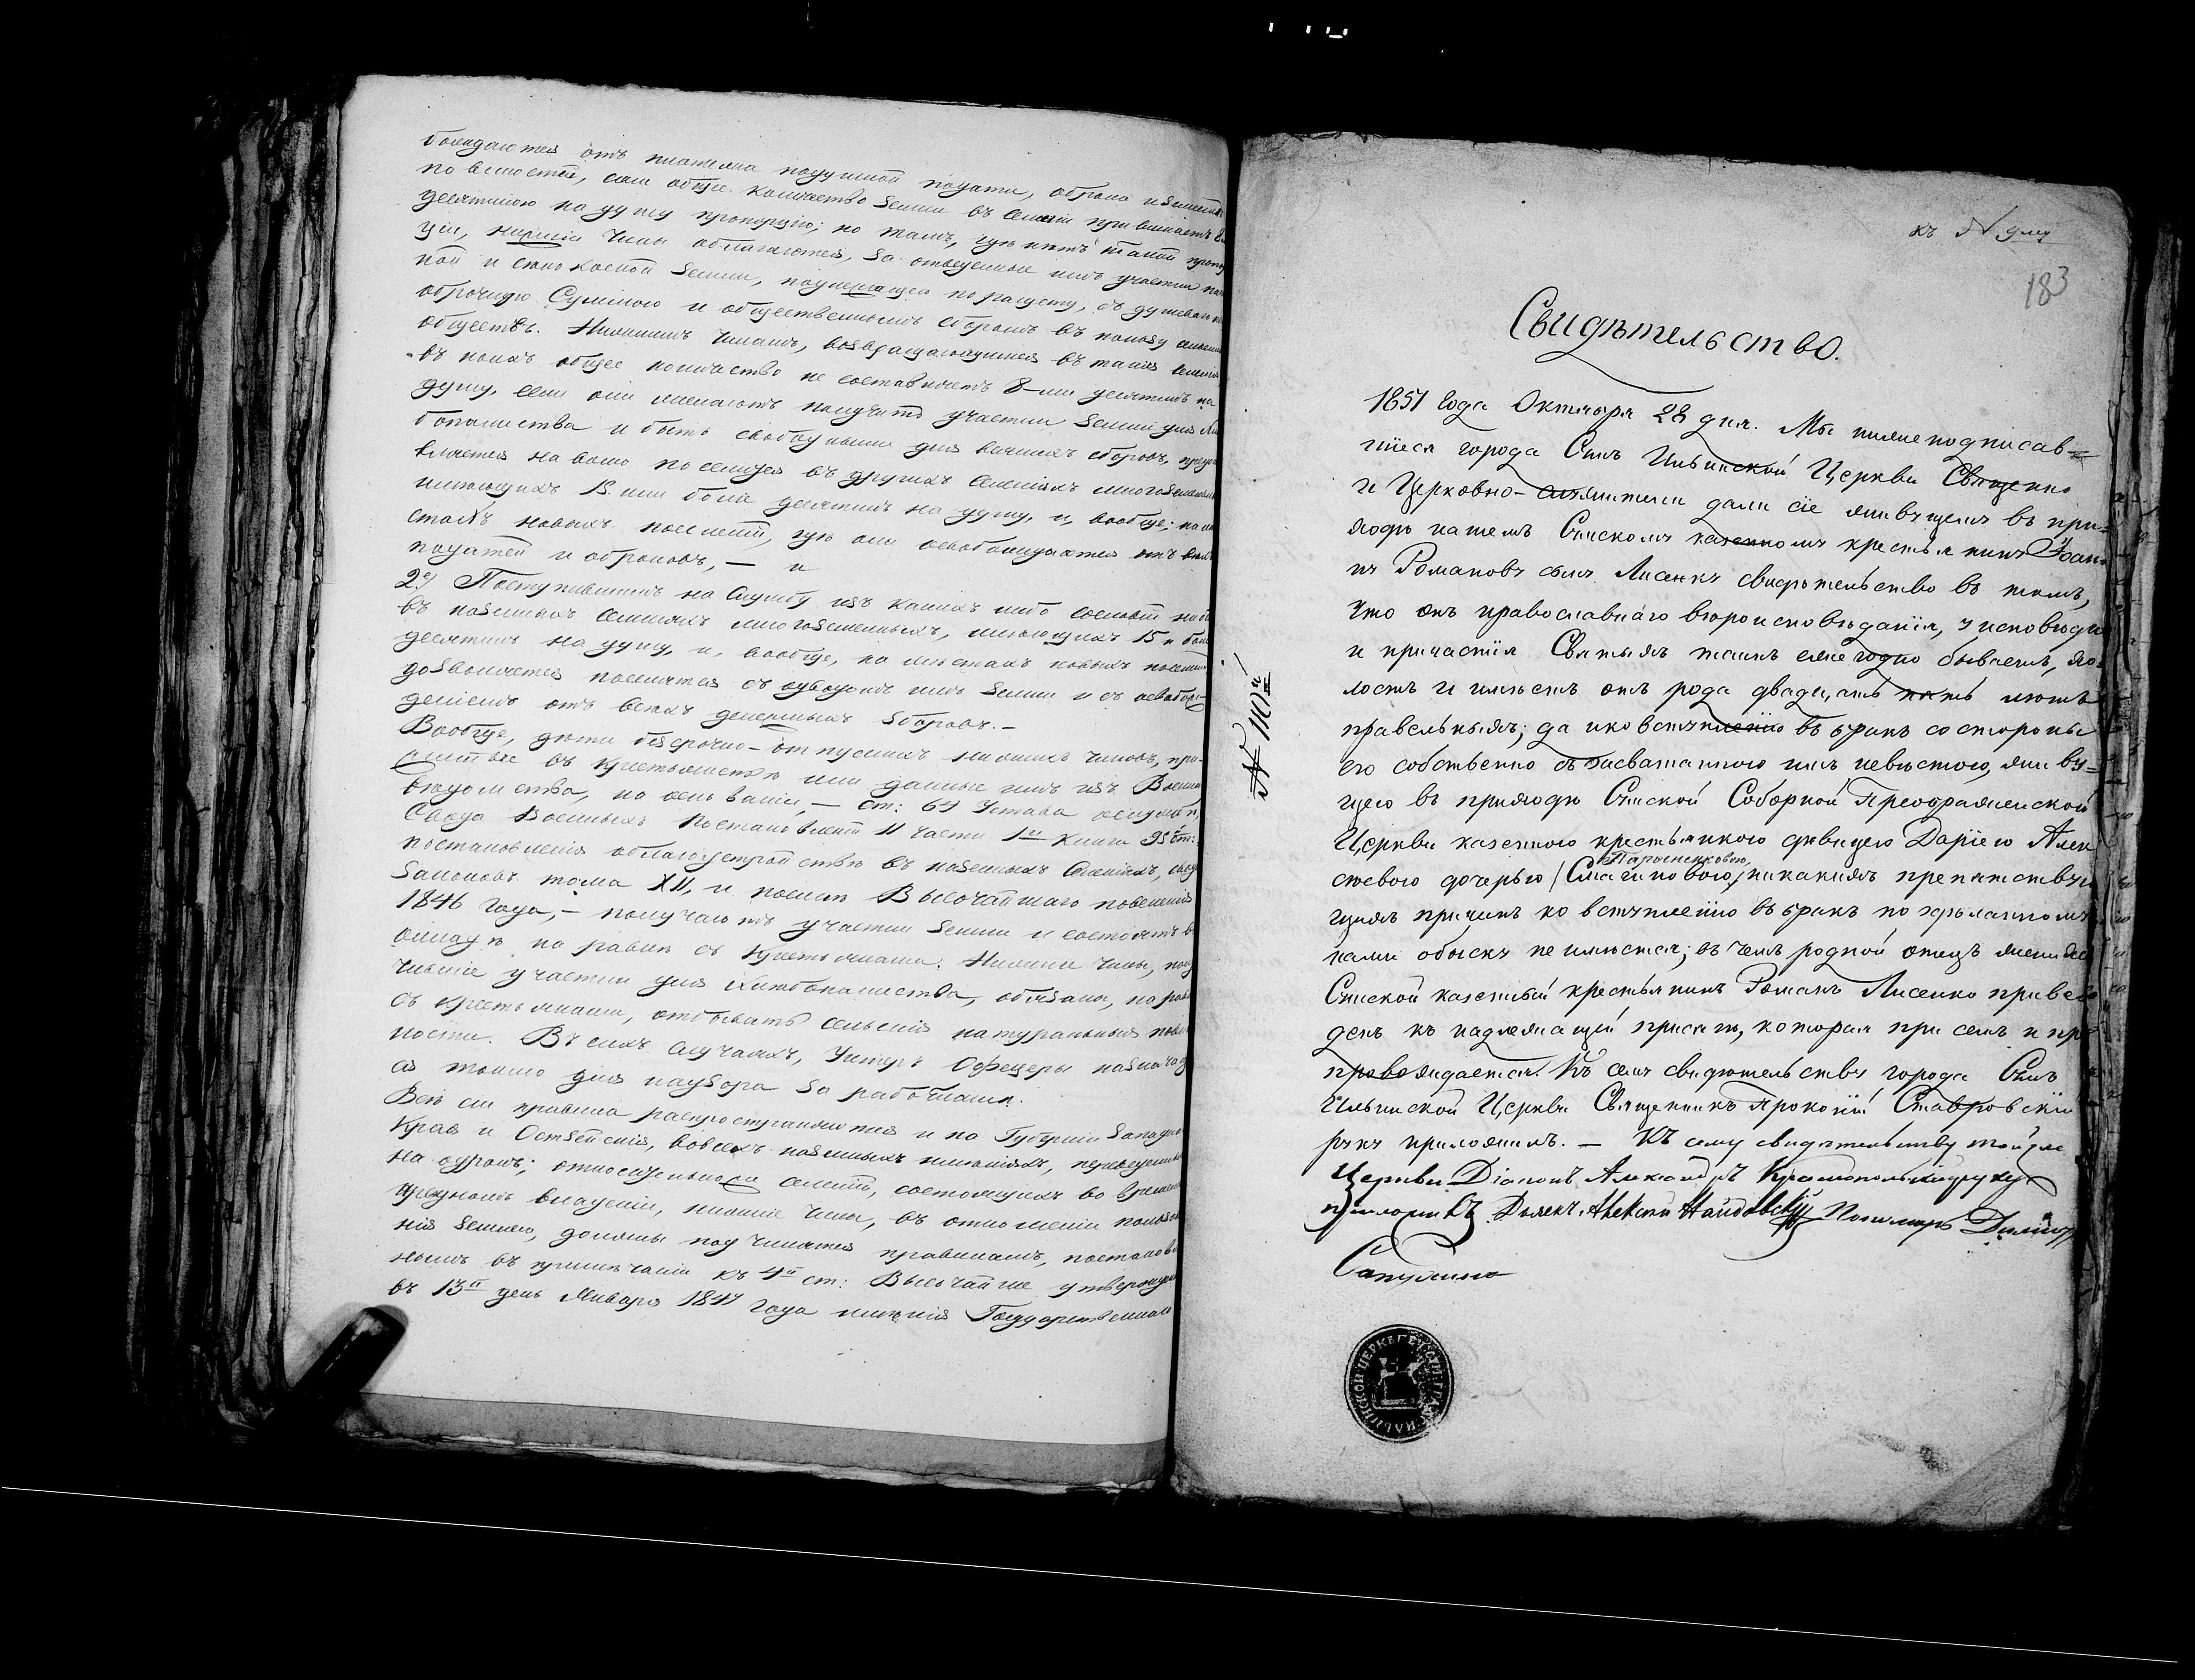 бождаются отъ платежа подушной подати, оброка и земскихъ
повинностей, если общее количество земли въ селеніи превышаетъ 8
десятинною на душу пропорцію; но тамъ, гдѣ нѣтъ такой пропор
ціи, нижніе чины облагаются, за отведенные имъ участки пахат
ной и сѣнокосной земли, подлежащею по расчету, съ душевою
оброчную суммою и общественнымъ сборомъ въ пользу
обществъ. Нижнимъ чинамъ, возвращающимся въ такія селенія,
въ коихъ общее количество не составляетъ 8-ми десятинъ на
душу, если они желаютъ получить участки земли для хлѣ
бопашества и быть свободными для всякихъ сборовъ, предо
вляется на волю поселиться въ другихъ селеніяхъ многоземельныхъ
имѣющихъ 15 или болѣе десятинъ на душу, и, вообще, на мѣ
стахъ новыхъ поселеній, гдѣ они освобождаются отъ всѣхъ
податей и оброковъ, — и
2е) Поступившимъ на службу изъ какихъ либо сословій
въ казенныхъ селеніяхъ многоземельныхъ, имѣющихъ 15 и болѣе
десятинъ на душу, и, вообще, на мѣстахъ новыхъ поселеній
дозволяется поселяться съ отводомъ имъ земли и съ освобож
деніемъ отъ всѣхъ денежныхъ сборовъ. —
Вообще, дѣти безсрочно-отпускныхъ нижнихъ чиновъ, при
житые въ крестьянствѣ или данные имъ изъ Военнаго
вѣдомства, на основаніи, — ст: 64 Устава
Свода Военныхъ Постановленій II части 1й книги 95 ст:
постановленія о благоустройствѣ въ казенныхъ селеніяхъ, свода
законовъ тома XII, и послѣ Высочайшаго повелѣнія
1846 года, — получаютъ участки земли и состоятъ въ
окладѣ на равнѣ съ крестьянами. Нижніе чины, полу
чившіе участки для хлѣбопашества, обязаны, на равнѣ
съ крестьянами, отбывать сельскія натуральныя повин
ности. Въ сихъ случаяхъ, Унтеръ Офицеры назнача
ся только для надзора за работами.
Всѣ сіи правила распространяются и на Губерніи Западнаго
Края и Остзейскія, во всѣхъ казенныхъ имѣніяхъ, переведенныхъ
на оброкъ; относительно же селеній, состоящихъ во време
арендномъ владѣніи, нижніе чины, въ отношеніи пользова
нія землею, должны подчиняться правиламъ, постановлен
нымъ въ примѣчаніи къ 4й ст: Высочайше утвержден
въ 13й день Января 1847 года мнѣнія Государственнаго
къ N
183
Свидѣтельство.
1851 года Октября 28 дня. Мы нижеподписав-
шіеся города Сумъ Ильинской Церкви Священно
и Церковно-служители дали сіе живущемъ въ при-
ходѣ нашемъ Сумскомъ казенномъ крестьянинѣ Іоан
нѣ Романовѣ сынѣ Лисенкѣ свидѣтельство въ томъ,
что онъ православнаго вѣроисповѣданія, у исповѣди
и причастія Святыхъ таинъ ежегодно бываетъ, хо
лостъ и имѣетъ отъ рода двадцать пять лѣтъ
правельныхъ; да и ко вступленію въ бракъ со стороны
его собственно съ засватанною имъ невѣстою, живу=
щею въ приходѣ Сумской Соборной Преображенской
Церкви казенною крестьянкою дѣвицею Даріею Алек
сѣевою дочерью (Смагиновою,) никакихъ препятствую
Парасненковою,
щихъ причинъ ко вступленію въ бракъ по здѣланномъ
нами обыскѣ не имѣется; въ чемъ родной отецъ жениха
Сумской казенный крестьянинъ Романъ Лисенко приве
денъ къ надлежащей присягѣ, которая при семъ и пре
провождается. Къ сему свидѣтельству города Сумъ
Ильинской Церкви Священникъ Прокопій Ставровскій
руку приложилъ. — Къ сему свидѣтельству той же
Церкви Діаконъ Александръ Краснопольскій руку
приложилъ Дьячекъ Алексѣй Найдовскій Пономарь
N 110й